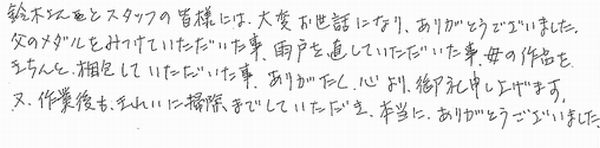 鈴木さんとスタッフの皆様には、大変お世話になり、ありがとうございました。
父のメダルをみつけていただいた事、雨戸を直していただいた事、母の作品を
きちんと、梱包していただいた事、ありがたく、心より、御礼申し上げます。
又、作業後も、きれいに掃除までしていただき、本当に、ありがとうございました。